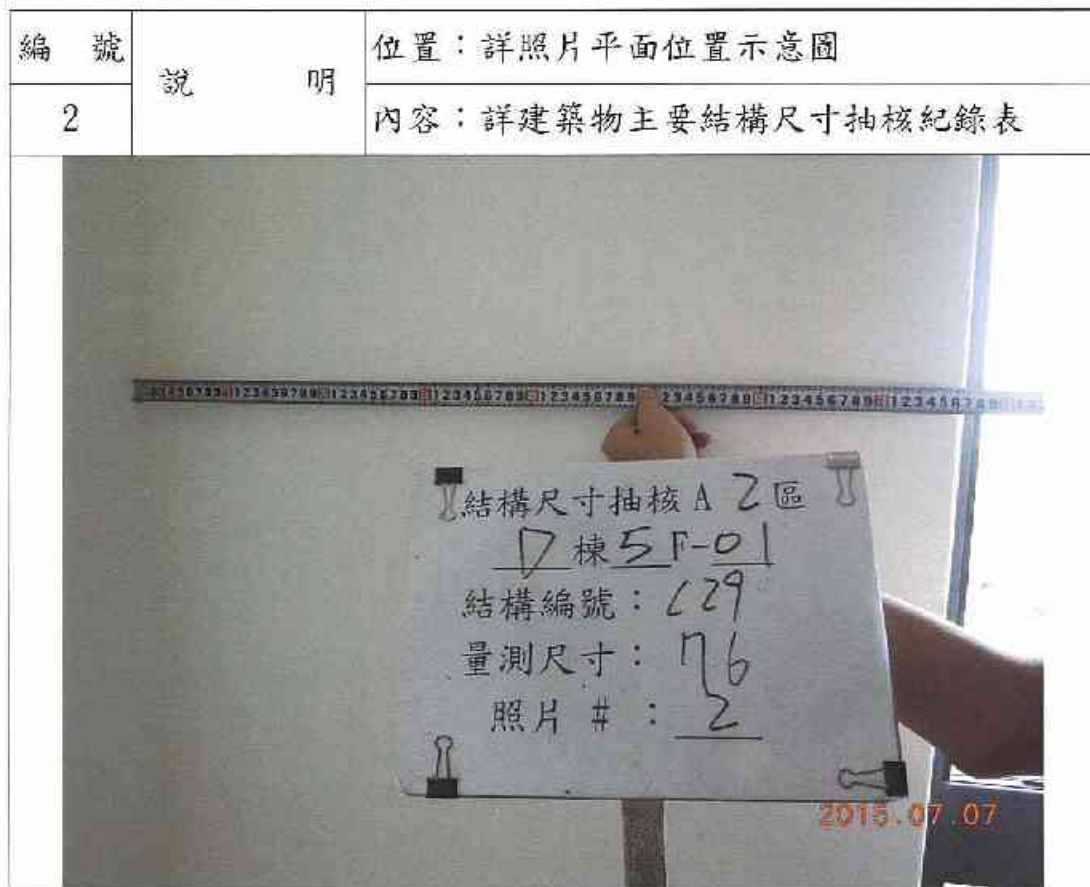 編 號
說 明
位置：詳照片平面位置示意圖
2
內容：詳建築物主要結構尺寸抽核紀錄表
結構尺寸抽核 A 2 區
D 棟 5 F-01
結構編號：C29
量測尺寸：76
照片 #：2
2015.07.07